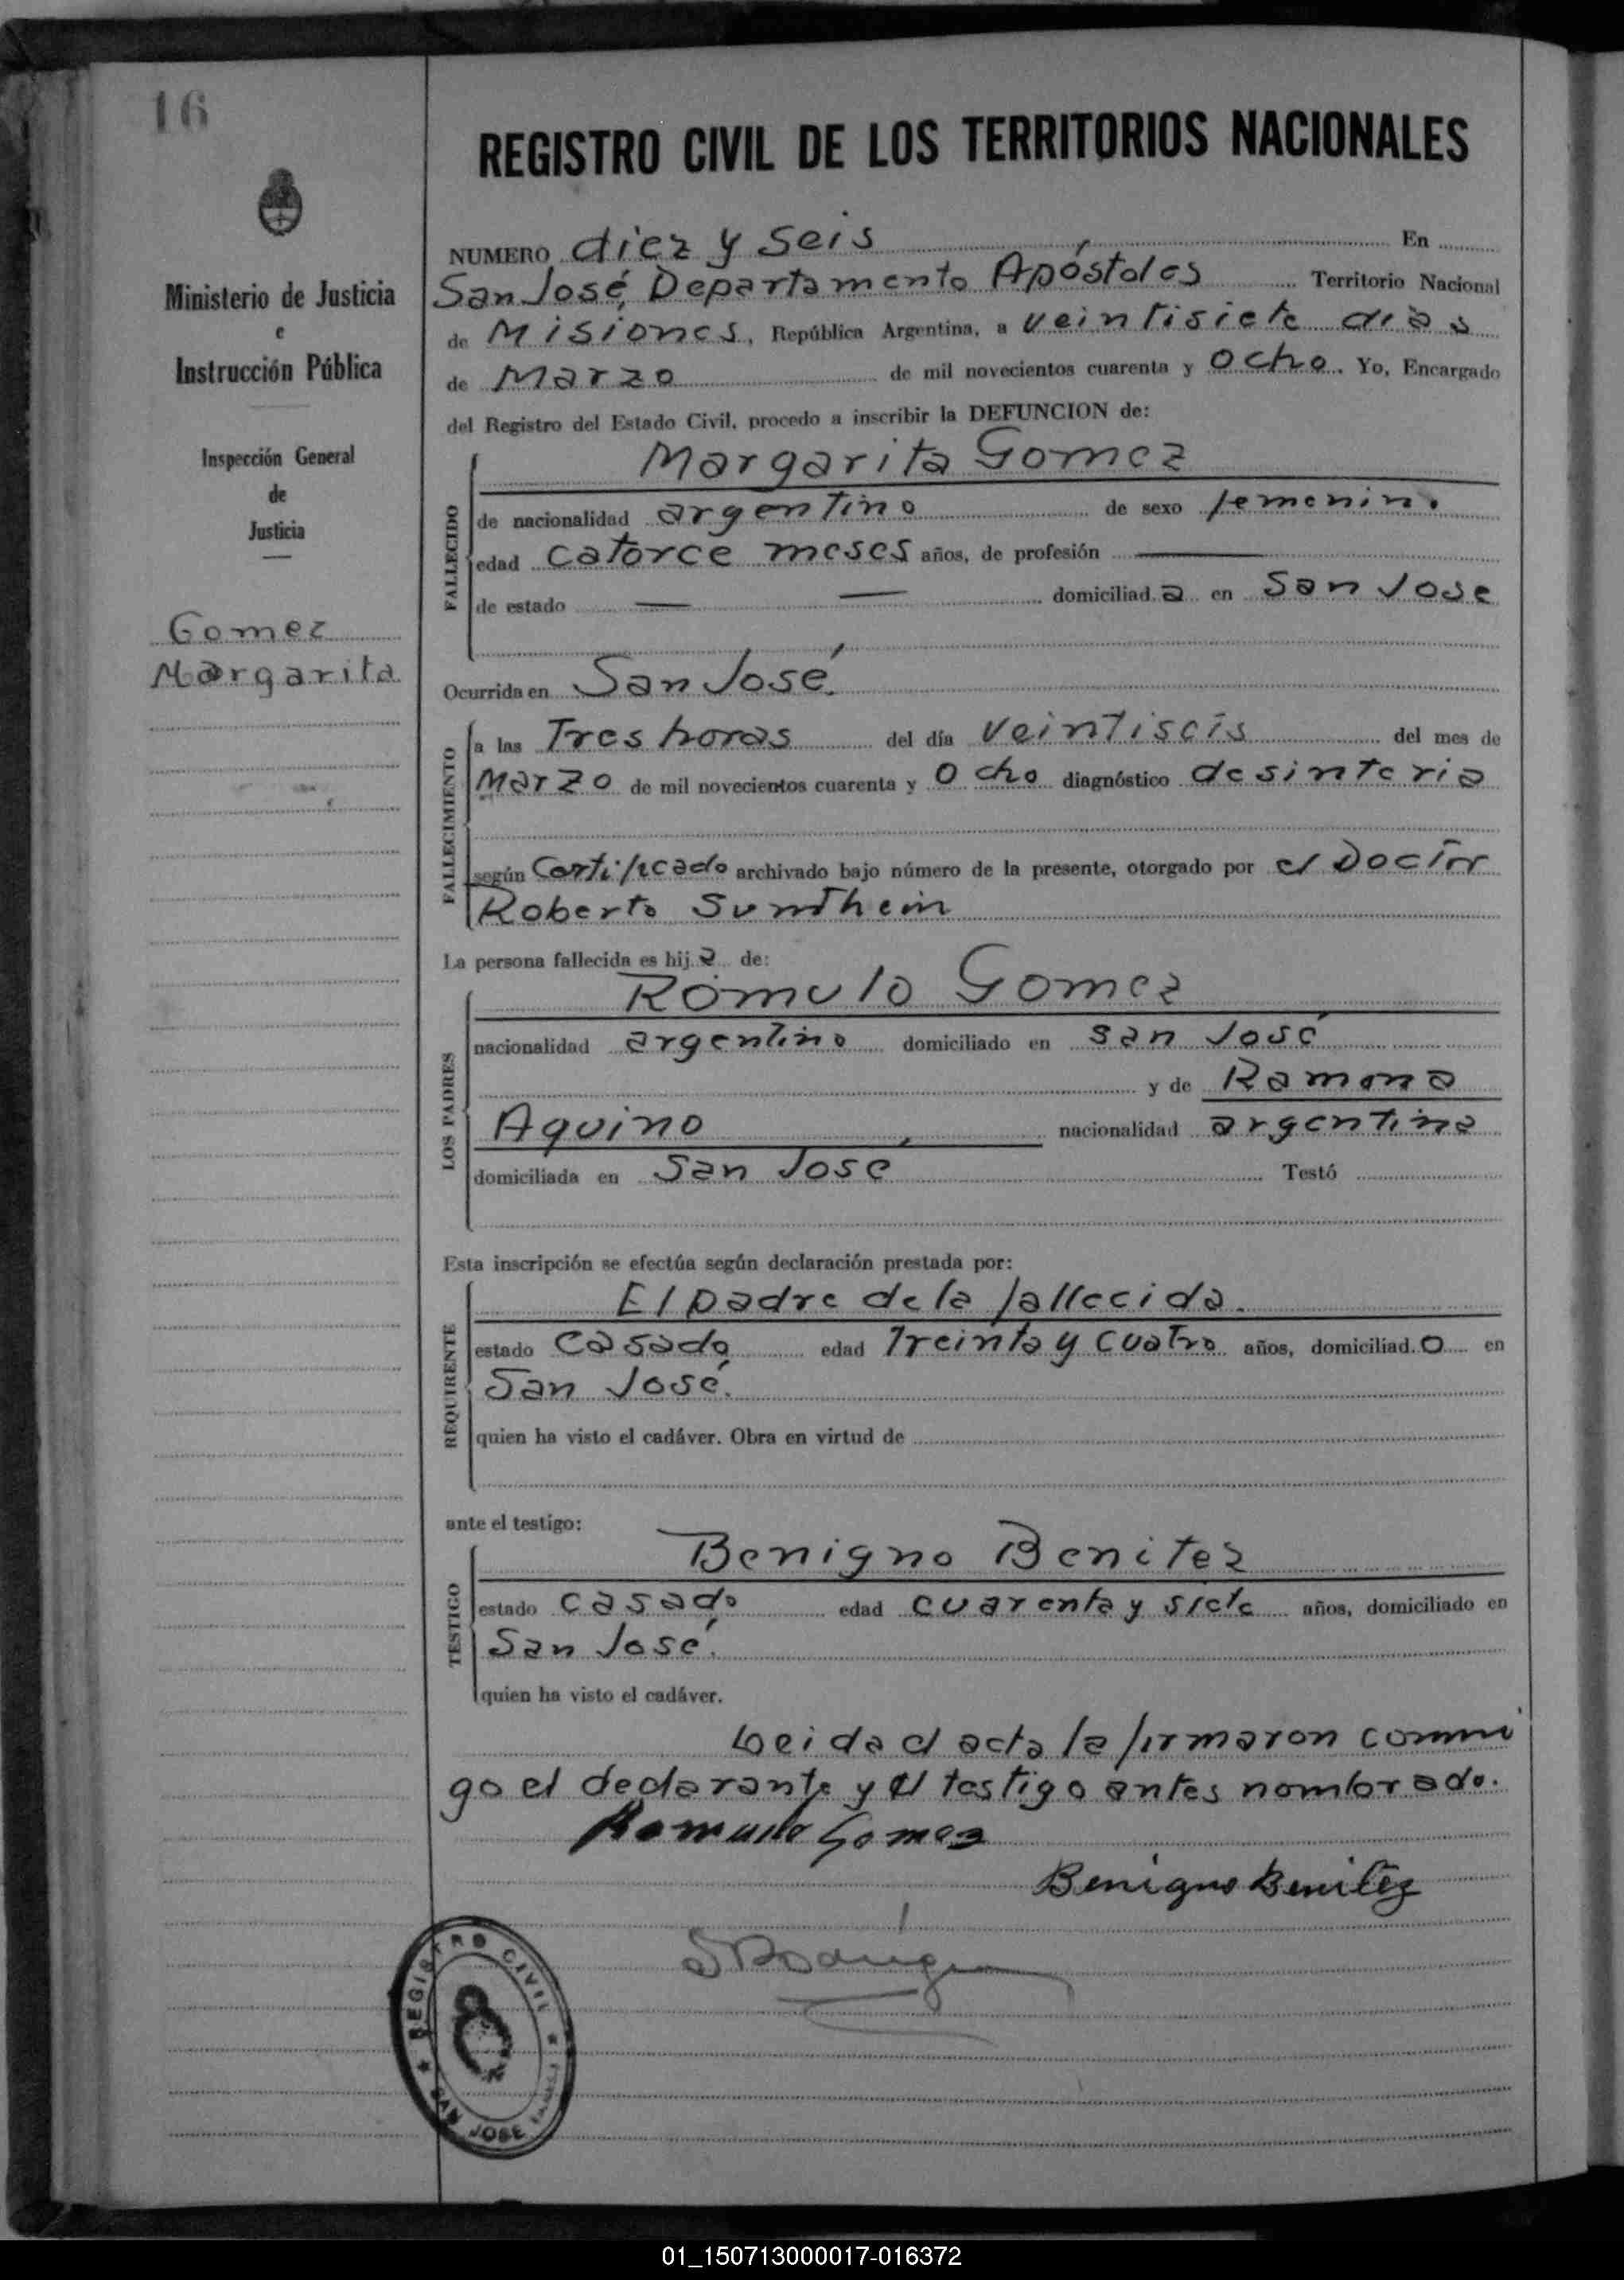 16
REGISTRO CIVIL DE LOS TERRITORIOS NACIONALES
Ministerio de Justicia
e
Instrucción Pública
Inspección General
de
Justicia
Gomez
Margarita
NUMERO diez y seis En
San José, Departamento Apóstoles Territorio Nacional
de Misiones, República Argentina, a veintisiete dias
de Marzo de mil novecientos cuarenta y Ocho. Yo, Encargado
del Registro del Estado Civil, procedo a inscribir la DEFUNCION de:
FALLECIDO
Margarita Gomez
de nacionalidad argentino de sexo femenino
edad catorce meses años, de profesión —
de estado — — domiciliad a en San Jose
Ocurrida en San José.
FALLECIMIENTO
a las Tres horas del día veintiseis del mes de
Marzo de mil novecientos cuarenta y Ocho diagnóstico desinteria
según Certificado archivado bajo número de la presente, otorgado por el Doctor
Roberto Sundhein
La persona fallecida es hij a de:
LOS PADRES
Romulo Gomez
nacionalidad argentino domiciliado en San José
y de Ramona
Aquino, nacionalidad argentina
domiciliada en San Jose Testó
Esta inscripción se efectúa según declaración prestada por:
REQUIRENTE
El padre de la fallecida.
estado casado edad Treinta y cuatro años, domiciliad o en
San José.
quien ha visto el cadáver. Obra en virtud de
ante el testigo:
TESTIGO
Benigno Benitez
estado casado edad cuarenta y siete años, domiciliado en
San José.
quien ha visto el cadáver.
Leida el acta la firmaron conmi
go el declarante y el testigo antes nombrado.
Romulo Gomez
Benigno Benitez
REGISTRO CIVIL
SAN JOSE
01_150713000017-016372